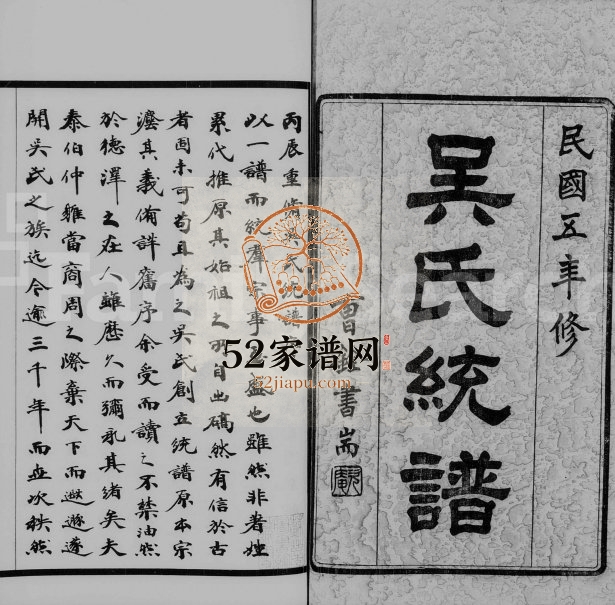 民國五年修
吳氏統譜
曾書耑
丙辰重脩吳氏統譜
以一譜而統羣宗事盛也雖然非著姓
累代推原其始祖之所自出確然有信於古
者固未可苟且為之吳氏創立統譜原本宗
灋其義備詳舊序余受而讀之不禁油然
於德澤之在人雖歷久而彌永其緒矣夫
泰伯仲雍當商周之際棄天下而遯遂
開吳氏之族迄今逾三千年而世次秩然
52家谱网
52jiapu.com